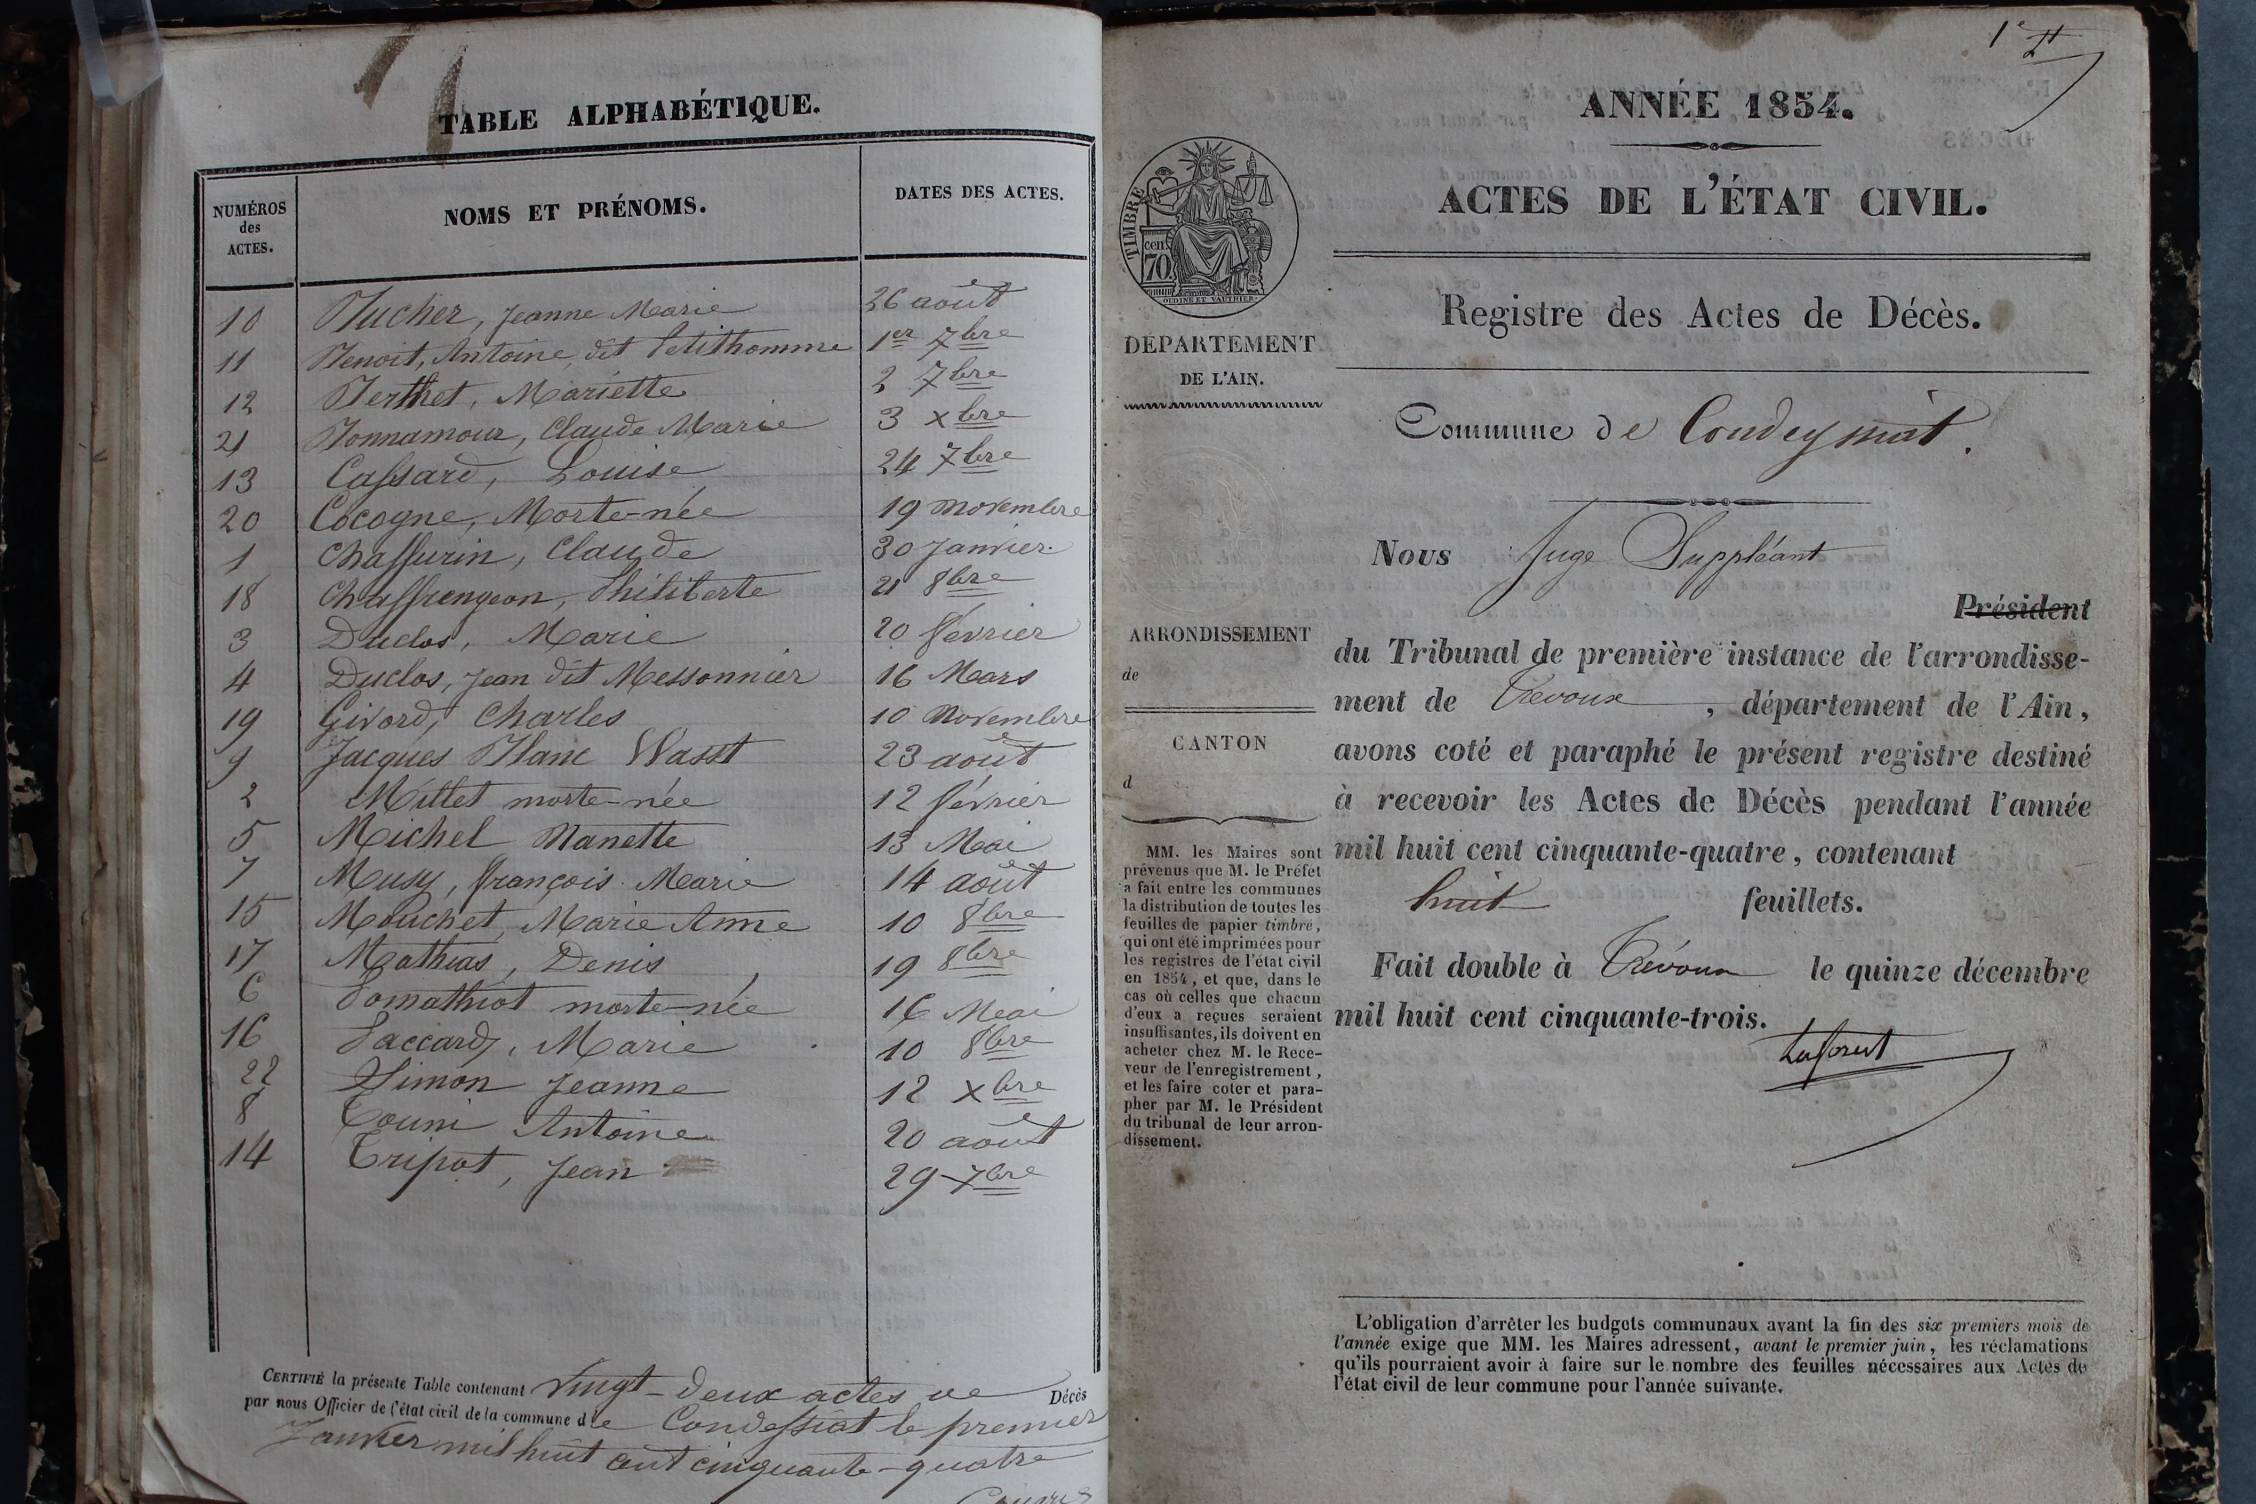 TABLE ALPHABÉTIQUE.
NUMÉROS des ACTES.
NOMS ET PRÉNOMS.
DATES DES ACTES.
10 Bucher, Jeanne Marie 26 août
11 Benoit, Antoine dit Petithomme 1er 7bre
12 Berthet, Mariette 2 7bre
21 Bonnamour, Claude Marie 3 xbre
13 Cassard, Louise 24 7bre
20 Cocogne, Morte-née 19 novembre
1 Chaffurin, Claude 30 Janvier
18 Chaffrengeon, Philiberte 21 8bre
3 Duclos, Marie 20 février
4 Duclos, Jean dit Messonnier 16 Mars
19 Givord, Charles 10 Novembre
9 Jacques Blanc 23 août
2 Millet morte-née 12 février
5 Michel Nanette 13 Mai
7 Musy, françois Marie 14 août
15 Mouchet, Marie Anne 10 8bre
17 Mathias, Denis 19 8bre
6 Pomathiot morte-née 16 Mai
16 Paccard, Marie 10 8bre
22 Simon Jeanne 12 xbre
8 Touni Antoine 20 août
14 Tripot, Jean 29 7bre
CERTIFIÉ la présente Table contenant Vingt-deux actes de Décès
par nous Officier de l'état civil de la commune de Condessiat le premier
Janvier mil huit cent cinquante-quatre
1er
ANNÉE 1854.
ACTES DE L'ÉTAT CIVIL.
TIMBRE
cen.
70
OUDINÉ ET VAUTHIER.
Registre des Actes de Décès.
DÉPARTEMENT
DE L'AIN.
Commune de Condeysiat.
Nous Juge Suppléant
Président
ARRONDISSEMENT
de
du Tribunal de première instance de l'arrondisse-
ment de Trévoux, département de l'Ain,
CANTON
d
avons coté et paraphé le présent registre destiné
à recevoir les Actes de Décès pendant l'année
mil huit cent cinquante-quatre, contenant
huit feuillets.
Fait double à Trévoux le quinze décembre
mil huit cent cinquante-trois.
MM. les Maires sont
prévenus que M. le Préfet
a fait entre les communes
la distribution de toutes les
feuilles de papier timbré,
qui ont été imprimées pour
les registres de l'état civil
en 1854, et que, dans le
cas où celles que chacun
d'eux a reçues seraient
insuffisantes, ils doivent en
acheter chez M. le Rece-
veur de l'enregistrement,
et les faire coter et para-
pher par M. le Président
du tribunal de leur arron-
dissement.
L'obligation d'arrêter les budgets communaux avant la fin des six premiers mois de
l'année exige que MM. les Maires adressent, avant le premier juin, les réclamations
qu'ils pourraient avoir à faire sur le nombre des feuilles nécessaires aux Actes de
l'état civil de leur commune pour l'année suivante.